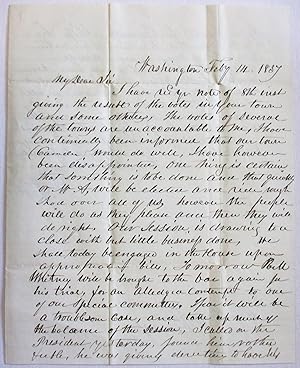 Washington Feby 14. 1837
My Dear Sir
I have recd yr note of 8th inst
giving the result of the votes in your town
and some others. The votes of several
of the towns are unaccountable to me, I have
continually been informed that our town
would do well, I have however
been disappointed. One thing is certain
that something is to be done and that quickly
or Mr. A, will be elected and ride rough
shod over all of us, however the people
will do as they please and then they will
do right. Our Session, is drawing to a
close with but little business done, We
shall today be engaged in the House upon
appropriation bills, Tomorrow
Whitney will be brought to the bar again for
his trial for an alledged Contempt to one
of our Special committees, I fear it will be
a troublsom Case, and take up much of
the balance of the Session, I called on the
President yesterday, found him rather
feeble, he was giving direction to have his